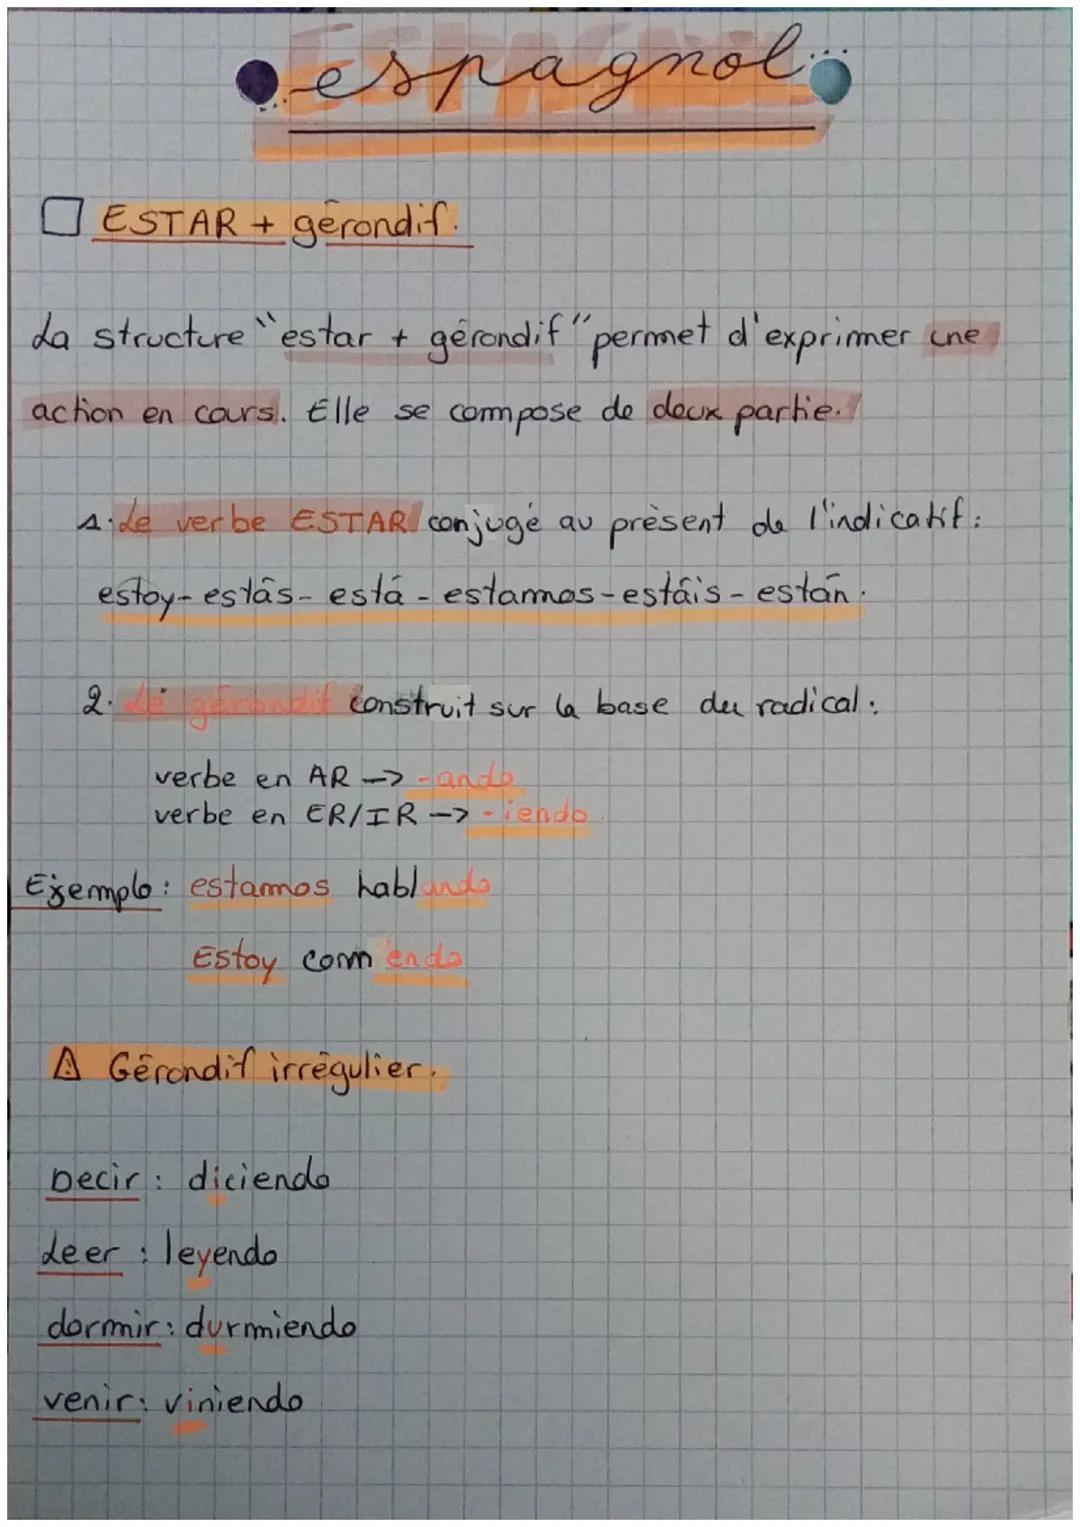 espagnol
ESTAR + gérondif.
La structure "estar + gérondif" permet d'exprimer une
action en cours. Elle se compose de deux partie.
1. Le verbe ESTAR conjugé au présent de l'indicatif :
estoy - estás - está - estamos - estáis - están.
2. Le gérondif construit sur la base du radical :
verbe en AR -> -ando
verbe en ER/IR -> -iendo.
Ejemplo : estamos hablando
Estoy comiendo
⚠ Gérondif irrégulier.
Decir : diciendo
Leer : leyendo
dormir : durmiendo
venir : viniendo